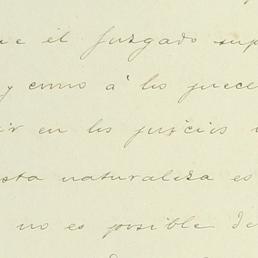 e él Juzgado sup
y como á los juece
ir en los juicios
sta naturaleza es
no es posible di